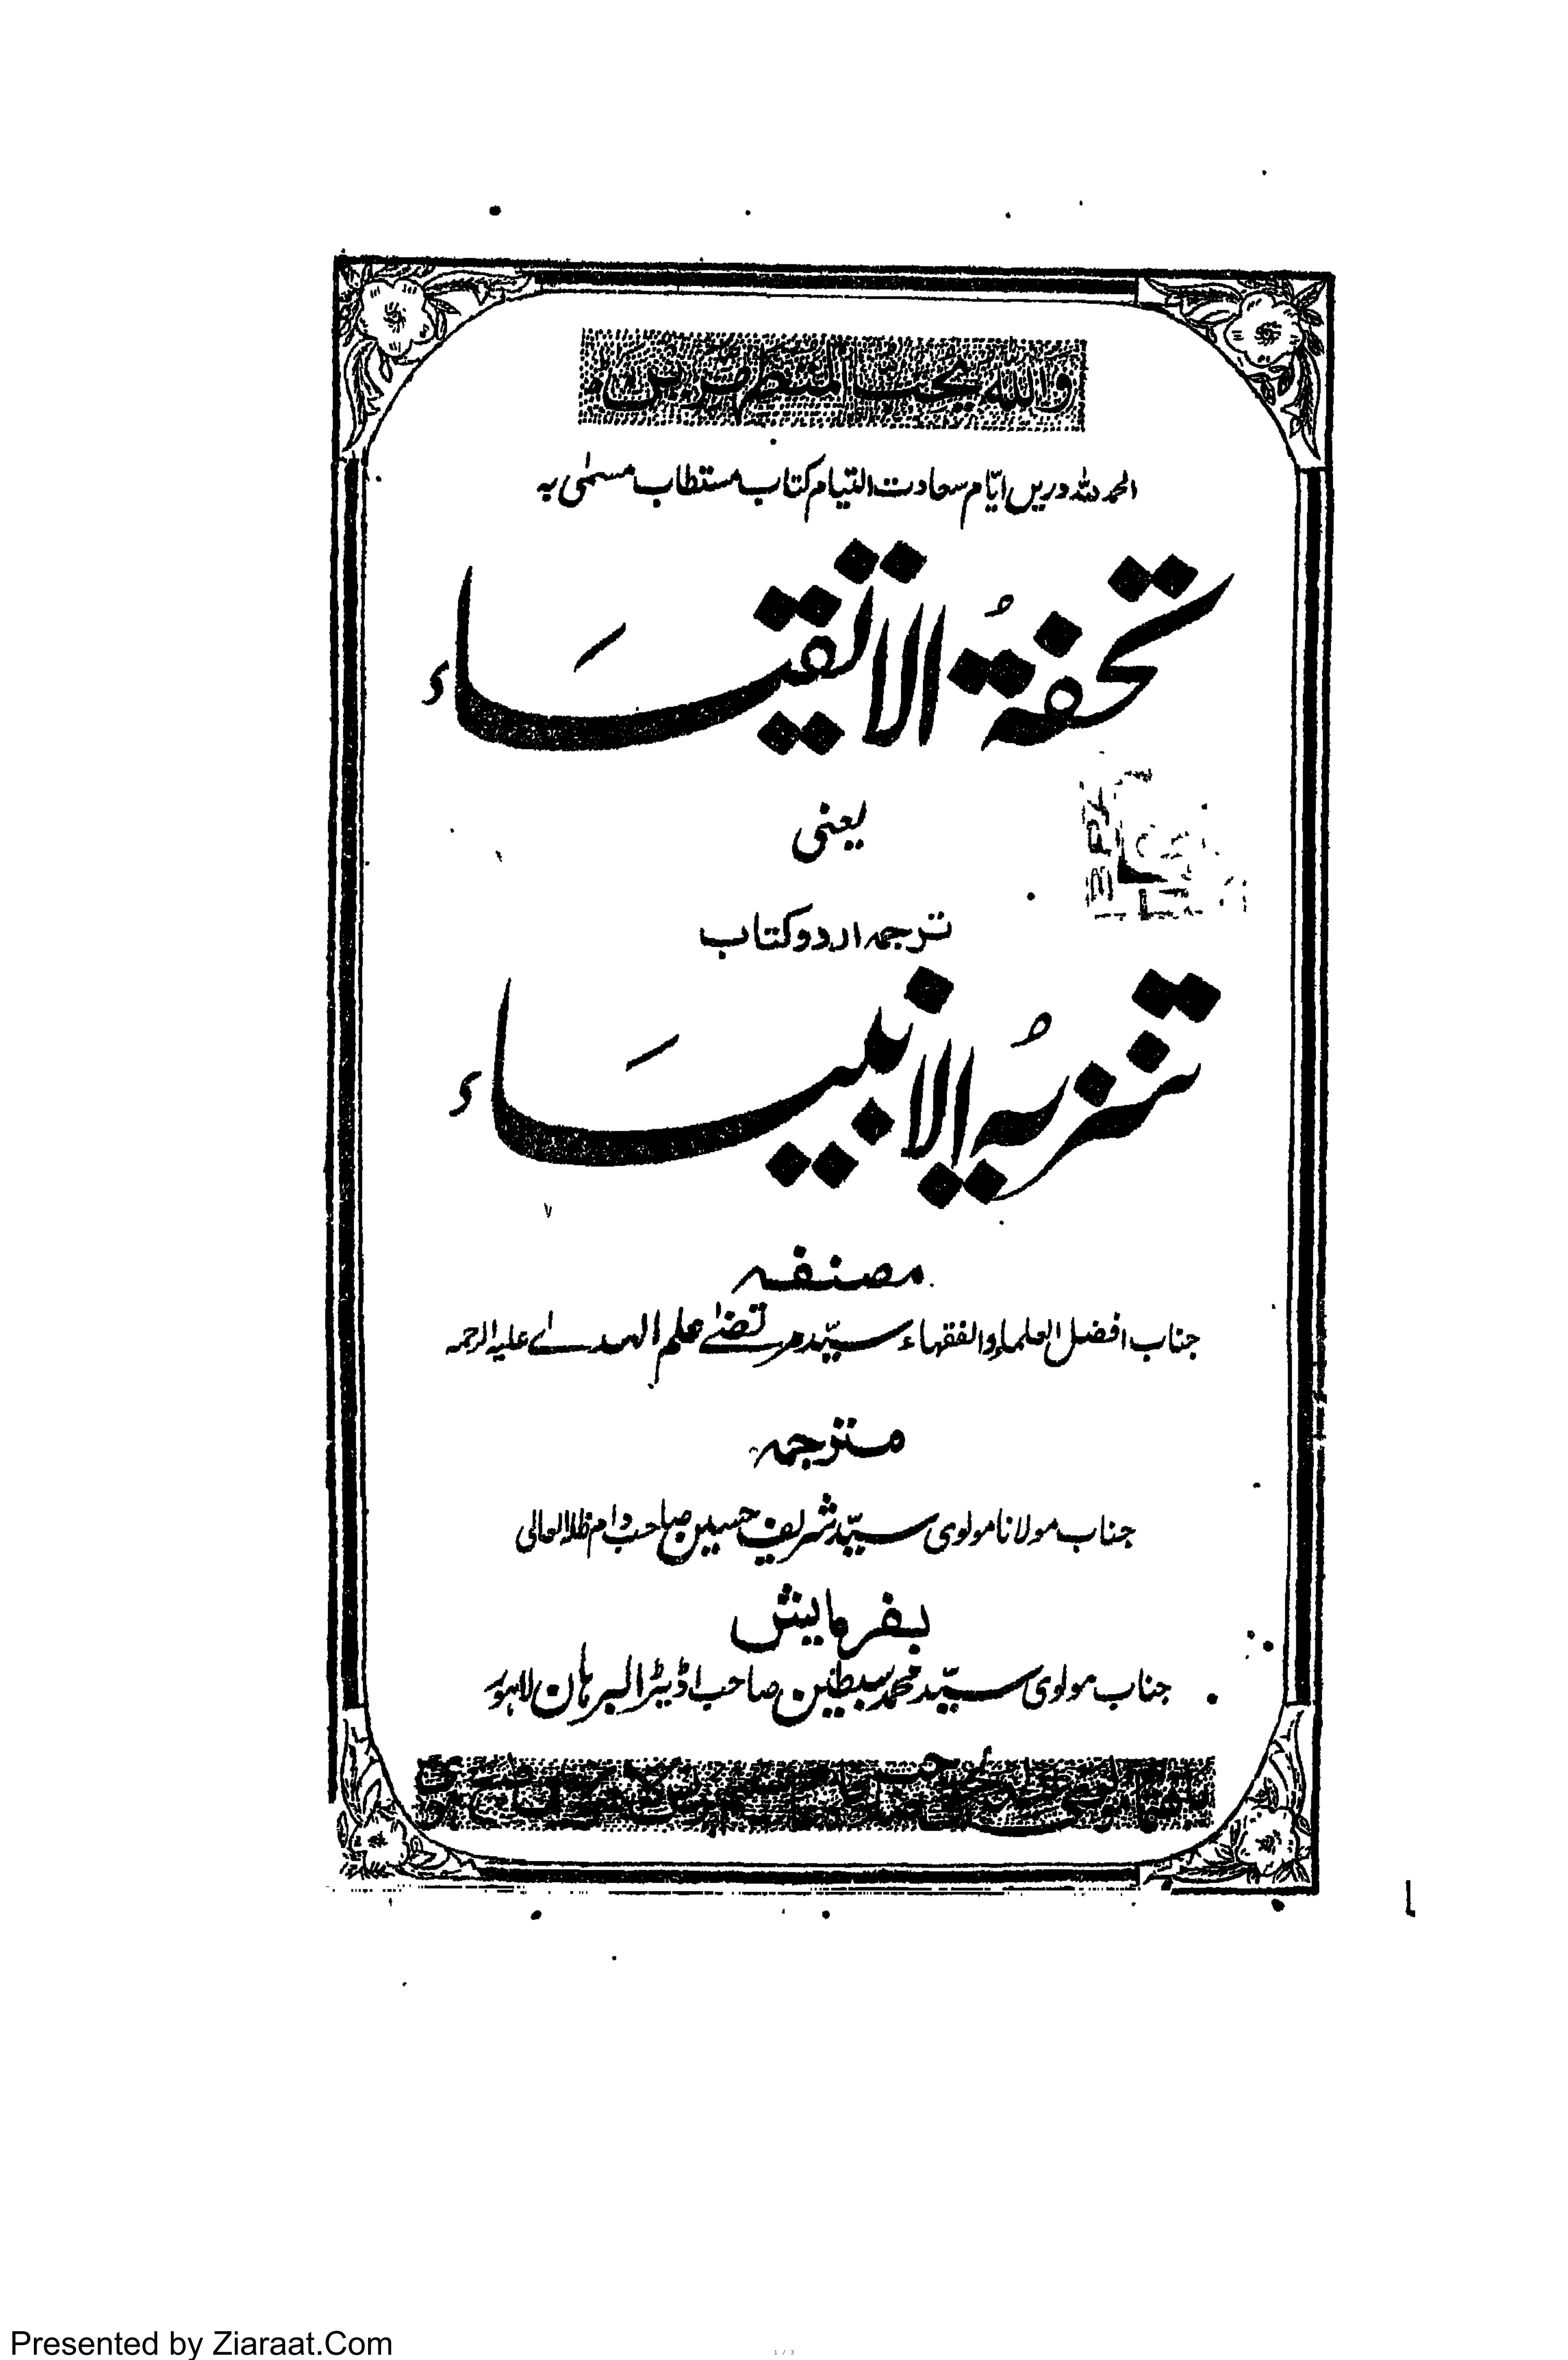 واللہ یحب المتطهرین
الحمد للہ دریں ایّام سعادت التیام کتاب مستطاب مسمّٰی بہ
تحفۃُ الاتقیَاء
یعنی
ترجمہ اردو کتاب
تنزیہُ الانبیَاء
مصنفہ
جناب افضل العلماء والفقہاء سیّد مرتضٰے علم الہدےٰ علیہ الرحمہ
مترجمہ
جناب مولانا مولوی سیّد شریف حسین صاحب دام ظلہ العالی
بفرمایش
جناب مولوی سیّد محمد سبطین صاحب اڈیٹر البرہان لاہور
1
Presented by Ziaraat.Com
1 / 3